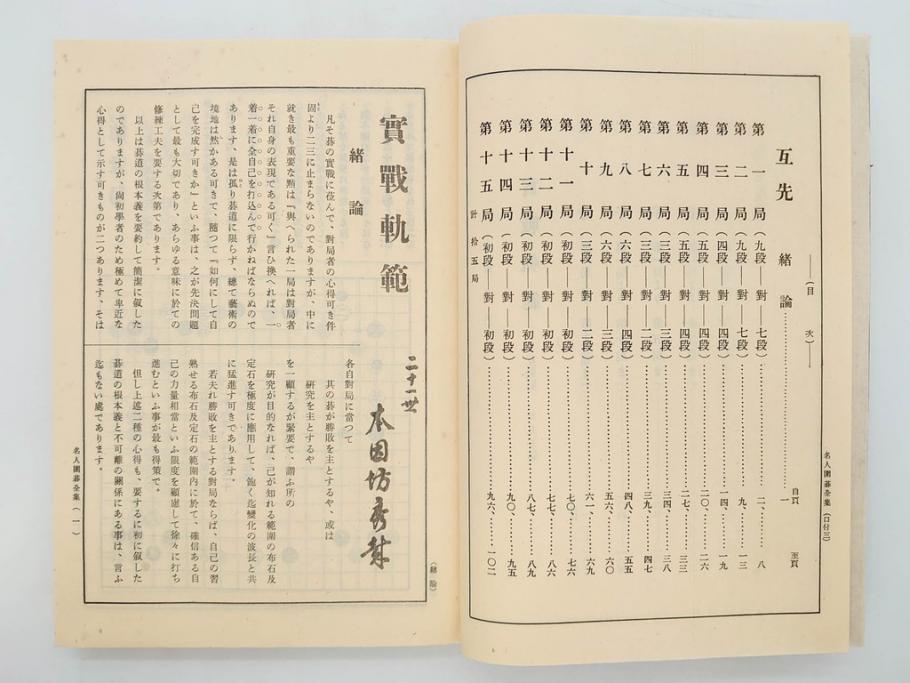 (目次)
互先 緒論……………一
自頁 至頁
第一局(九段——對——七段)……………二、八
第二局(九段——對——七段)……………九、一三
第三局(四段——對——四段)……………一四、一九
第四局(五段——對——四段)……………二〇、二六
第五局(五段——對——四段)……………二七、三三
第六局(三段——對——三段)……………三四、三八
第七局(三段——對——二段)……………三九、四七
第八局(六段——對——四段)……………四八、五五
第九局(六段——對——五段)……………五六、六〇
第十局(三段——對——二段)……………六一、六九
第十一局(初段——對——初段)……………七〇、七六
第十二局(初段——對——初段)……………七七、八六
第十三局(初段——對——初段)……………八七、八九
第十四局(初段——對——初段)……………九〇、九五
第十五局(初段——對——初段)……………九六、一〇二
計拾五局
名人圍碁全集
實戰軌範
緒論
凡そ碁の實戰に莅んで、對局者の心得可き件
固より二三に止まらないのでありますが、中に
就き最も重要な點は『與へられた一局は對局者
それ自身の表現である可く』言ひ換へれば、一
着一着に全自己を打込んで行かねばならぬので
あります、是は孤り碁道に限らず、總て藝術の
境地は然かある可きで、隨つて『如何にして自
己を完成す可きか』といふ事は、之が先決問題
として最も大切であり、あらゆる意味に於ての
修練工夫を要する次第であります。
以上は碁道の根本義を要約して簡潔に敍した
のでありますが、尚初學者のため極めて卑近な
心得として示す可きものが二つあります、そは
二十一世 本因坊秀哉
各自對局に當つて
其の碁が勝敗を主とするや、或は
研究を主とするや
を一顧するが緊要で、謂ふ所の
研究が目的なれば、己が知れる範圍の布石及
定石を極度に應用して、飽く迄變化の波長と共
に猛進す可きであります。
若夫れ勝敗を主とする對局ならば、自己の習
熟せる布石及定石の範圍内に於て、確信ある自
己の力量相當といふ限度を顧慮して徐々に打ち
進むといふ事が最も得策で。
但し上述二種の心得も、要するに初に敍した
碁道の根本義と不可離の關係にある事は、言ふ
迄もない處であります。
(緒論)
名人圍碁全集(一)